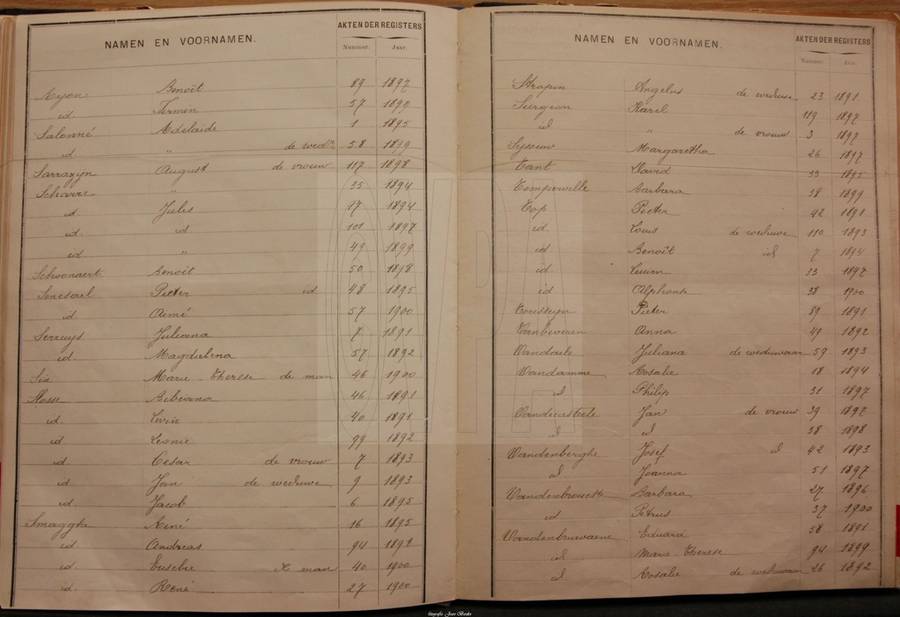 NAMEN EN VOORNAMEN. AKTEN DER REGISTERS
Nummer. Jaar.
Ryon Benoît 89 1897
id Firmen 57 1899
Salomé Adelaide 1 1895
id " de wedr 58 1899
Sarrazyn August de vrouw 117 1898
" 35 1894
id Jules 17 1894
id id 101 1897
id " 49 1899
Schoonaert Benoît 50 1898
Pieter id 48 1895
id Aimé 57 1900
Serruys Juliana 7 1891
id Magdalena 57 1892
Six Marie Therese de man 46 1900
Bibiana 46 1891
id Livin 40 1891
id Leonie 99 1892
id Cesar de vrouw 7 1893
id Jan de weduwe 9 1893
id Jacob 6 1895
Smagghe René 16 1895
id Andreas 94 1892
id Eusebie de man 40 1900
id René 27 1900
NAMEN EN VOORNAMEN. AKTEN DER REGISTERS
Nummer. Jaar.
Angelus de weduwe 23 1891
Surgeon Karel 119 1897
id " de vrouw 3 1897
Syssouw Margaretha 26 1897
Tant David 33 1895
Temperville Barbara 38 1899
Top Pieter 42 1891
id Louis de weduwe 110 1893
id Benoît id 7 1894
id Lucien 33 1897
id Alphonse 38 1900
Pieter 89 1891
Vanbeveren Anna 49 1892
Vandaele Juliana de weduwaar 59 1893
Vandamme Rosalie 18 1894
id Philip 31 1897
Jan de vrouw 39 1897
id id 38 1898
Vandenberghe Josef id 42 1893
id Joanna 51 1897
Vandenbrouck Barbara 27 1896
id Petrus 37 1900
Vandenbruwaene Eduard 58 1891
id Marie Therese 94 1899
id Rosalie de weduwaar 26 1892